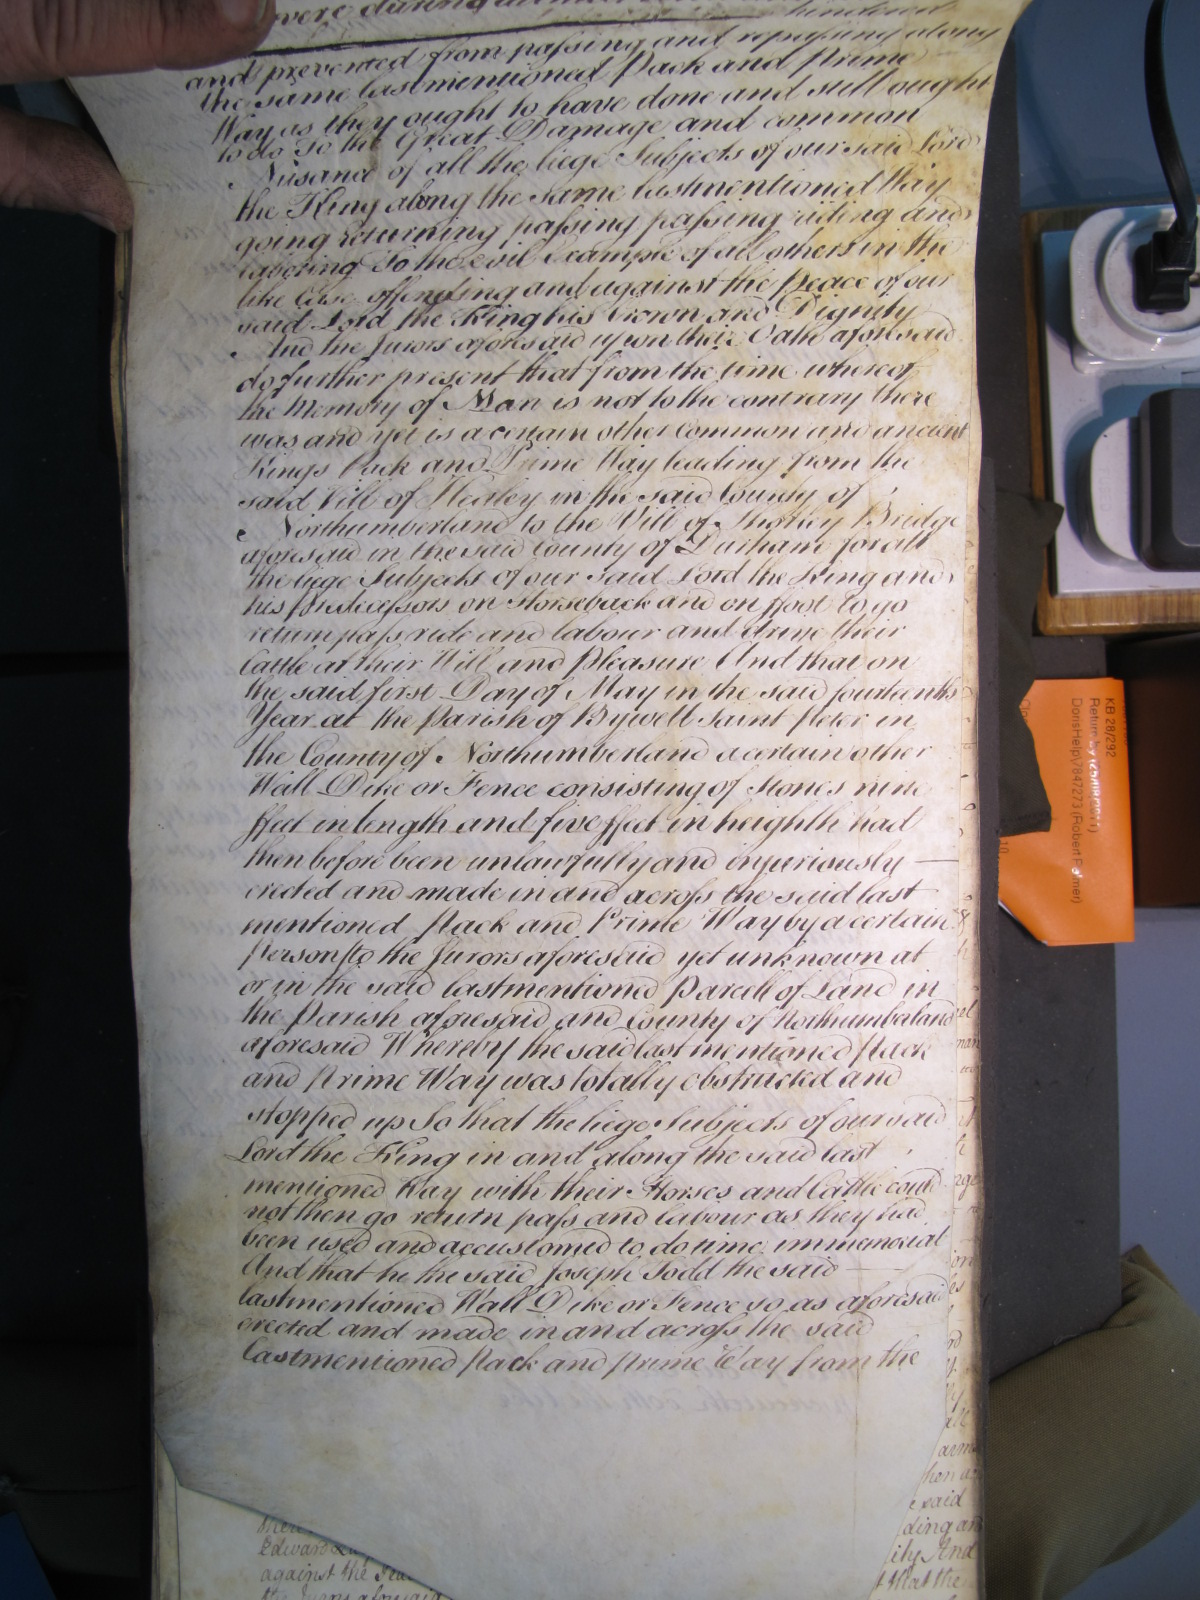 were during
hindered
and prevented from passing and repassing along
the same lastmentioned Pack and Prime
Way as they ought to have done and still ought
to do To the Great Damage and common
Nusance of all the liege Subjects of our said Lord
the King along the same lastmentioned Way
going returning passing passing riding and
labouring To the evil Example of all others in the
like Case offending and against the Peace of our
said Lord the King his Crown and Dignity
And the Jurors aforesaid upon their Oath aforesaid
do further present that from the time whereof
the Memory of Man is not to the contrary there
was and yet is a certain other common and ancient
Kings Pack and Prime Way leading from the
said Vill of Healey in the said County of
Northumberland to the Vill of Shotley Bridge
aforesaid in the said County of Durham for all
the liege Subjects of our said Lord the King and
his Predecessors on Horseback and on ffoot to go
return pass ride and labour and drive their
Cattle at their Will and Pleasure And that on
the said first Day of May in the said fourteenth
Year at the Parish of Bywell Saint Peter in
the County of Northumberland a certain other
Wall Dike or Fence consisting of Stones nine
ffeet in length and five ffeet in heighth had
then before been unlawfully and injuriously
erected and made in and across the said last
mentioned Pack and Prime Way by a certain
Person to the Jurors aforesaid yet unknown at
or in the said lastmentioned Parcell of Land in
the Parish aforesaid and County of Northumberland
aforesaid Whereby the said last mentioned Pack
and Prime Way was totally obstructed and
stopped up So that the liege Subjects of our said
Lord the King in and along the said last
mentioned Way with their Horses and Cattle could
not then go return pass and labour as they had
been used and accustomed to do time immemorial
And that he the said Joseph Todd the said
lastmentioned Wall Dike or Fence so as aforesaid
erected and made in and across the said
lastmentioned Pack and Prime Way from the
against the
the Jurors aforesaid
said
ding an
ily And
that the
KB 28/292
Return by (25/08/2011)
DorisHelp\7847273 (Robert Palmer)